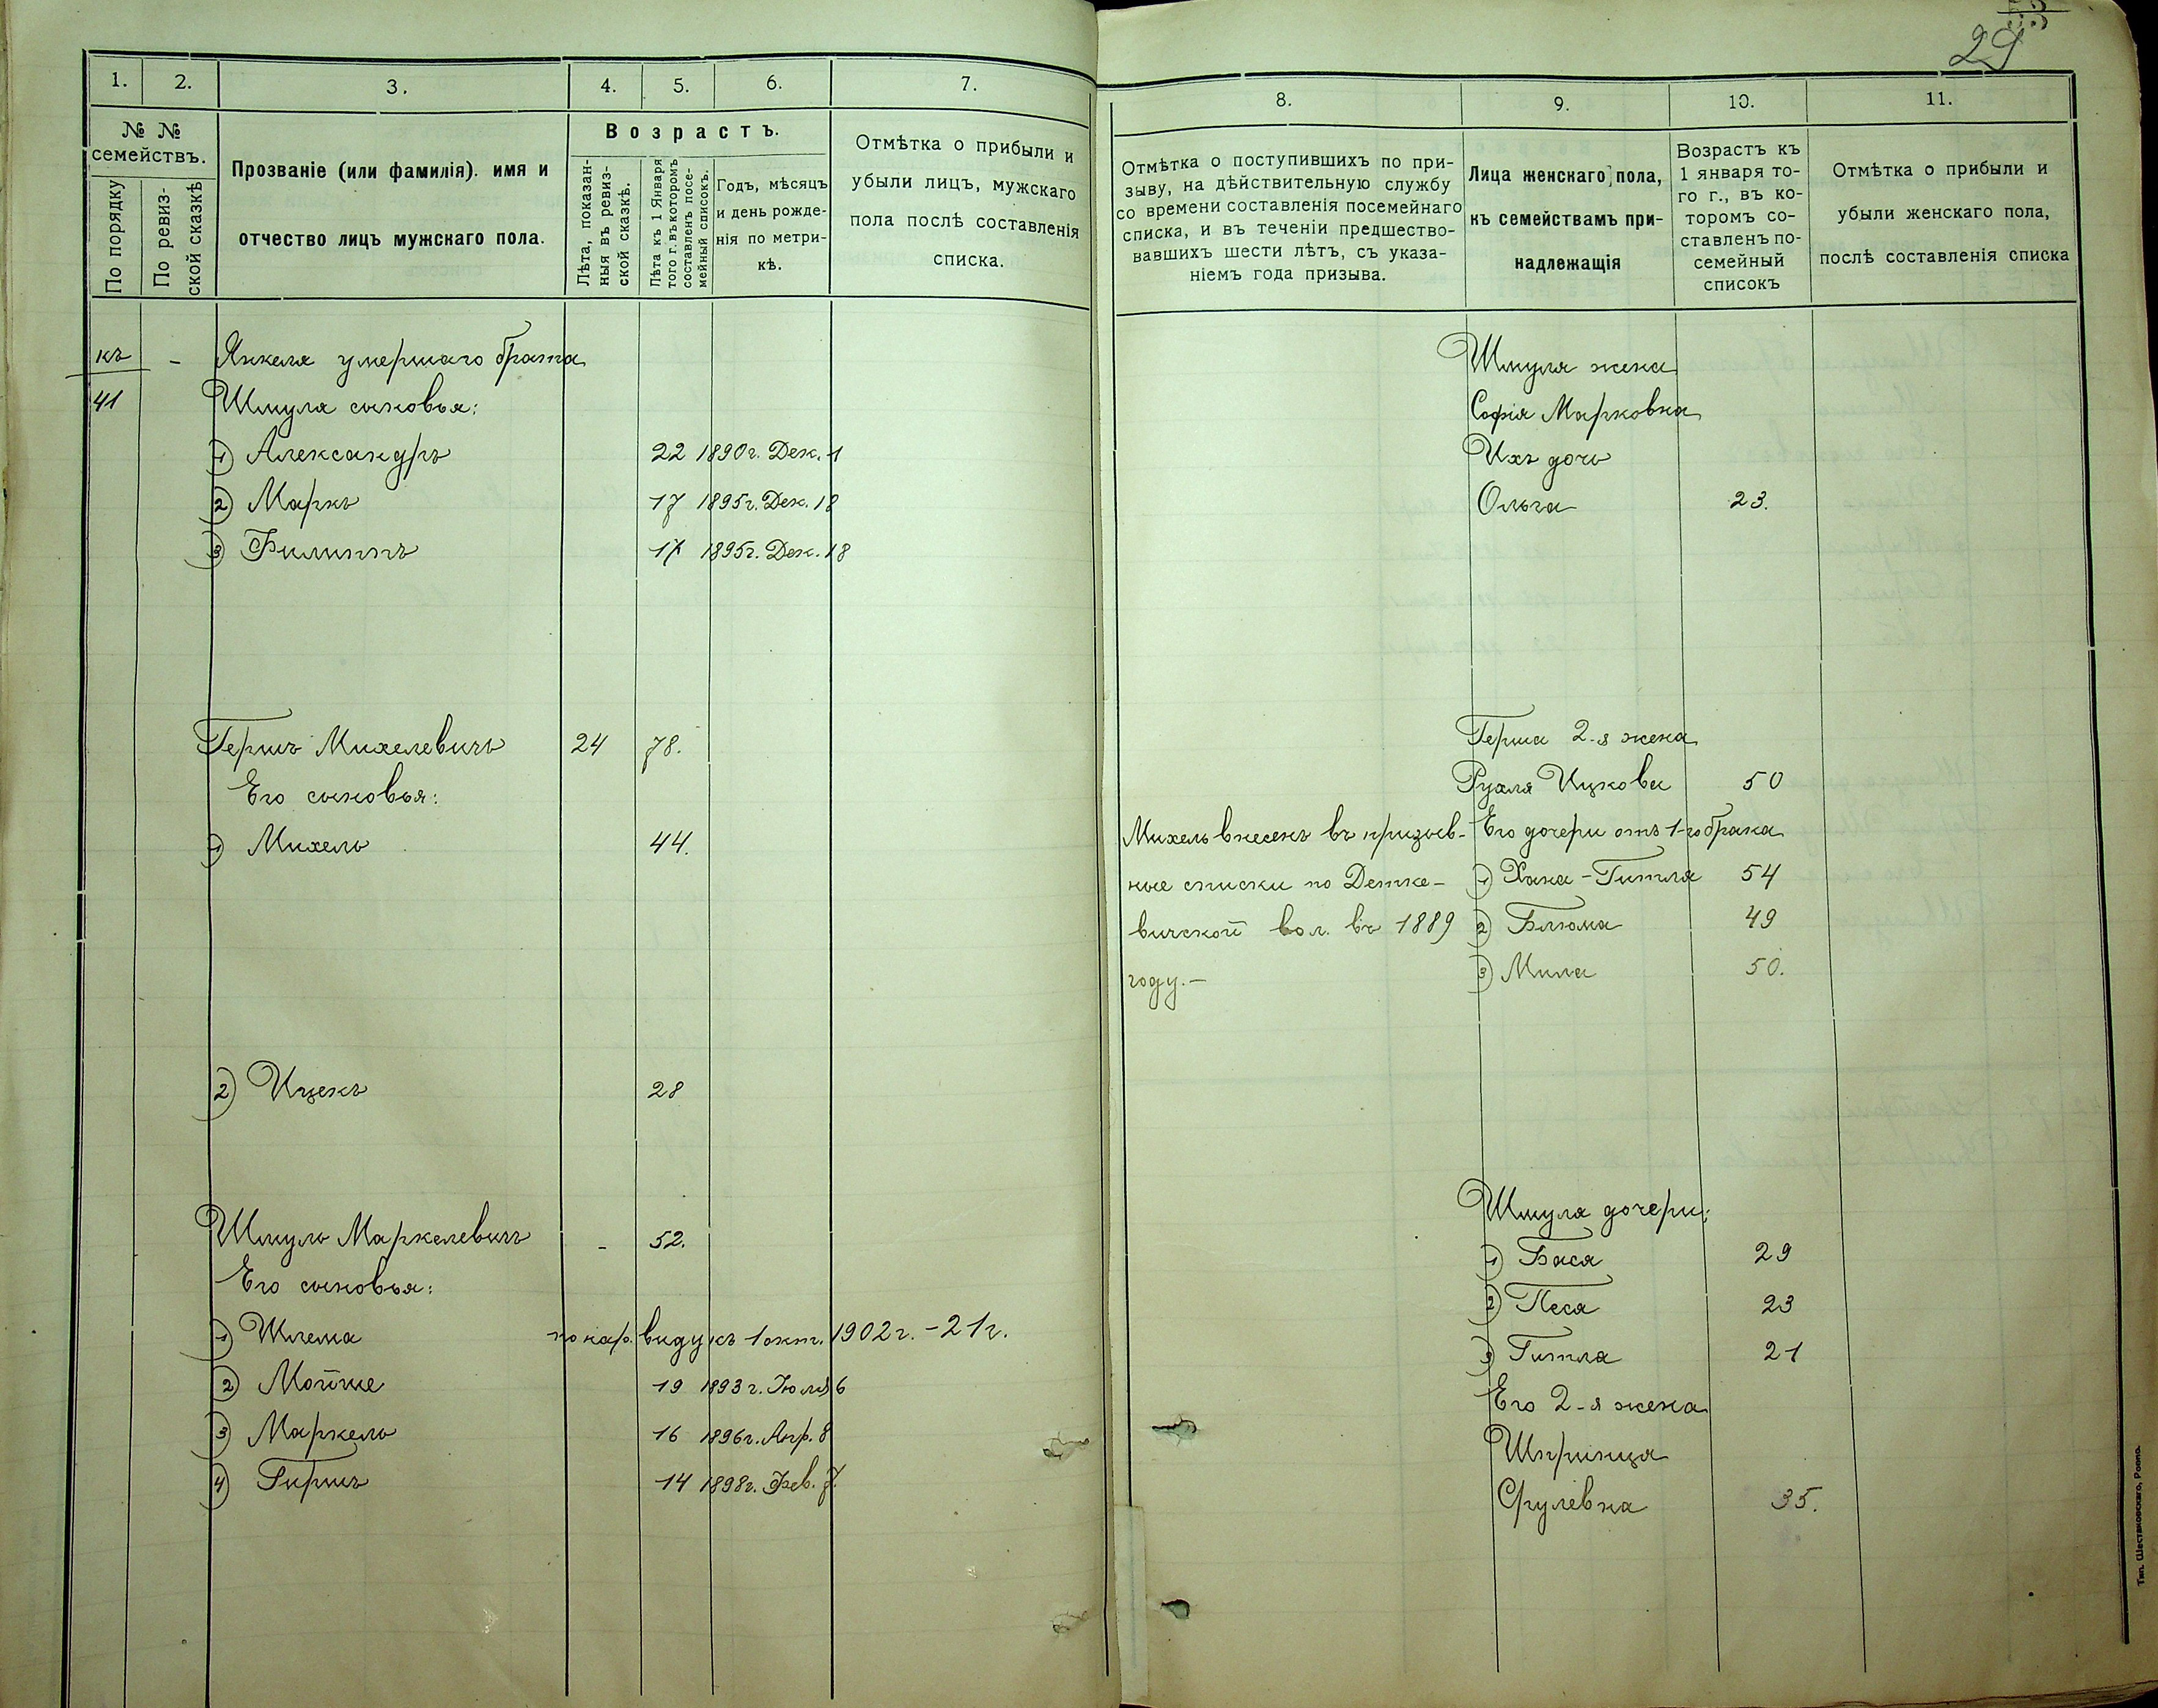 53
29
1.
2.
3.
4.
5.
6.
7.
№ №
семействъ.
По порядку
По ревиз-
ской сказкѣ
Прозваніе (или фамилія). имя и
отчество лицъ мужскаго пола.
Возрастъ.
Лѣта, показан-
ныя въ ревиз-
ской сказкѣ.
Лѣта къ 1 Января
того г. въ которомъ
составленъ посе-
мейный списокъ.
Годъ, мѣсяцъ
и день рожде-
нія по метри-
кѣ.
Отмѣтка о прибыли и
убыли лицъ, мужскаго
пола послѣ составленія
списка.
къ - Янкеля умершаго брата
41 Шмуля сыновья:
1) Александръ 22 1890 г. Дек. 1
2) Маркъ 17 1895 г. Дек. 18
3) Филиппъ 17 1895 г. Дек. 18
Гершъ Михелевичъ 24 78.
Его сыновья:
1) Михель 44.
2) Ицекъ 28
Шмуль Маркелевичъ - 52.
Его сыновья:
1) Шлема по нар. виду къ 1 окт. 1902 г. - 21 г.
2) Мойше 19 1893 г. Іюля 6
3) Маркель 16 1896 г. Апр. 8
4) Гиршъ 14 1898 г. Фев. 7.
8.
9.
10.
11.
Отмѣтка о поступившихъ по при-
зыву, на дѣйствительную службу
со времени составленія посемейнаго
списка, и въ теченіи предшество-
вавшихъ шести лѣтъ, съ указа-
ніемъ года призыва.
Лица женскаго пола,
къ семействамъ при-
надлежащія
Возрастъ къ
1 января то-
го г., въ ко-
торомъ со-
ставленъ по-
семейный
списокъ
Отмѣтка о прибыли и
убыли женскаго пола,
послѣ составленія списка
Шмуля жена
Софія Марковна
Ихъ дочь
Ольга 23.
Герша 2-я жена
Рухля Ицкова 50
Михель внесенъ въ призыв- Его дочери отъ 1-го брака
ные списки по Детке- 1) Хана-Гитля 54
вичской вол. въ 1889 2) Блюма 49
году.- 3) Мила 50.
Шмуля дочери:
1) Бася 29
2) Песя 23
3) Гитля 21
Его 2-я жена
Шпринца
Срулевна 35.
Тип. Шестаковскаго, Ровно.